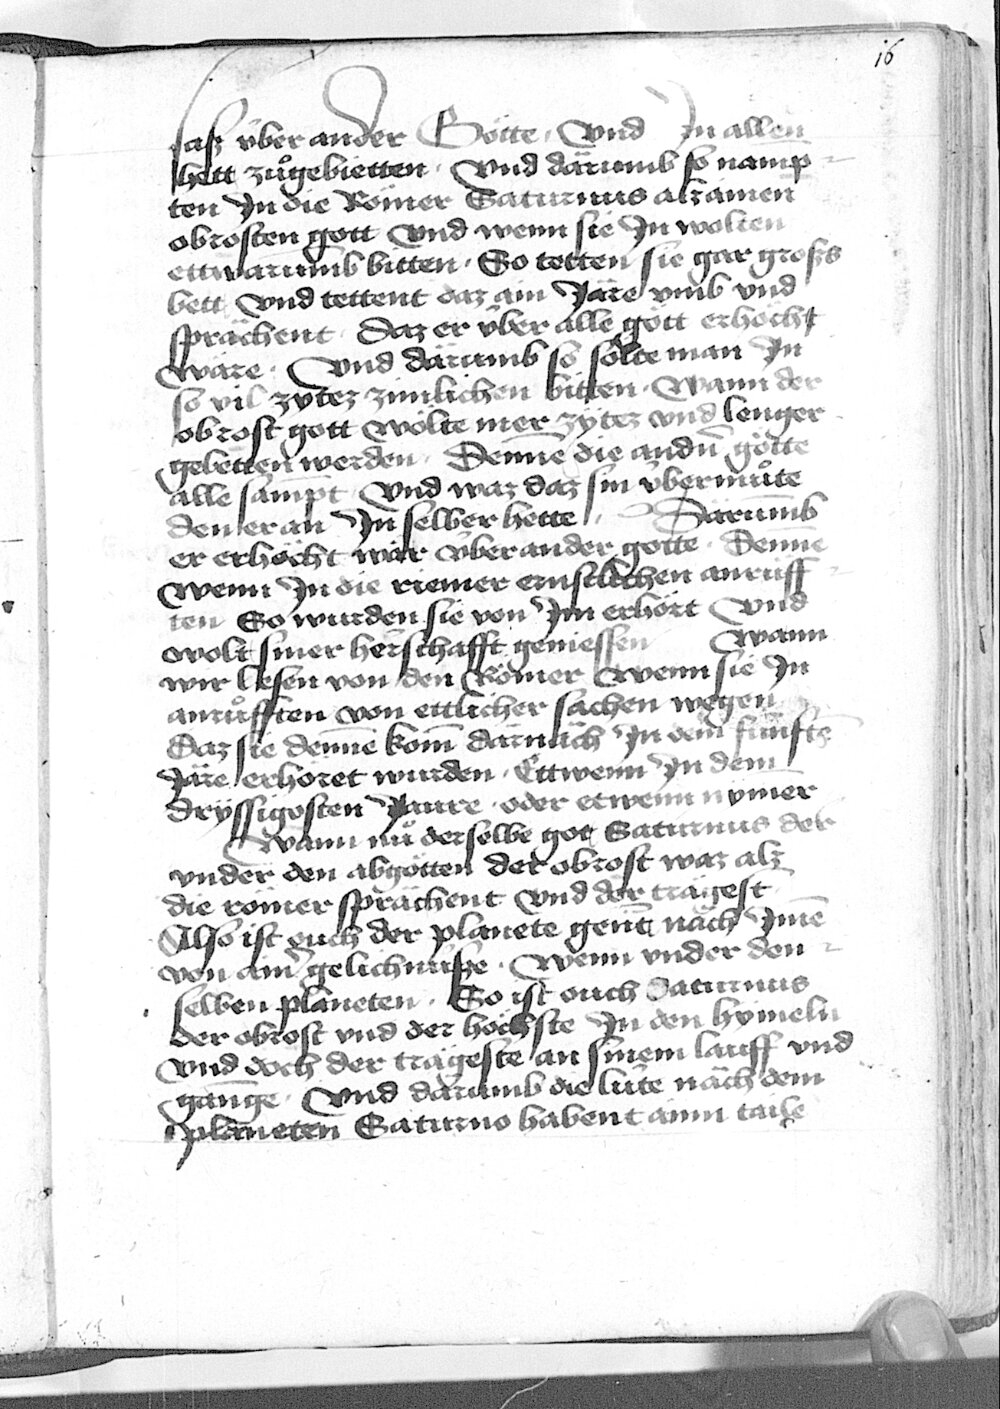 16
saß v̈ber ander Götte · Vnd Jn allen
hett zůgebietten · Vnd därumb so namp
ten Jn die Römer Saturnus alz ainen
obrosten gott Vnd wenn sie Jn wolten
ettwarumb bitten · So tetten sie gar großs
bett Vnd tettent daz ain Järe vmb vnd
sprächent · Daz er v̈ber alle gött erhöcht
wäre · Vnd därumb so sölte man Jn
so vil zytez zimlichen bitten · Wann der
obrost gott wölte mer zÿtez vnd lenger
gebetten werden · Denne die andn̄ götte
alle sampt Vnd waz daz sin v̈bermůte
den er an Jn selber hette · Därumb
er erhöcht wär v̈ber ander götte · Denne
wenn Jn die riemer ernstlichen anrüff
ten So wurden sie von Jm erhört Vnd
wolt siner herschafft geniessen Wann
wir lesen von den Römer Wenn sie Jn
anrůfften von ettlicher sachen wegen
Daz sie denne kom̄ därnäch Jn dem fünfftē
Järe erhöret wurden · Ettwenn Jn dem
drÿssigosten Jaure · oder etwenn nym̄er
Wann nů derselbe got Saturnus der
vnder den abgötten der obrost waz alz
die römer sprächent Vnd der trägest
Also ist ouch der planete gen̄t näch Jmē
von ain̄ gelichnüsze · Wenn vnder den
selben planeten · So ist ouch Saturnus
der obrost vnd der höchste Jn den hymeln
Vnd doch der trägeste an sinem lauff vnd
gänge · Vnd därumb die lüte näch dem
planeten Saturno habent ainn taile